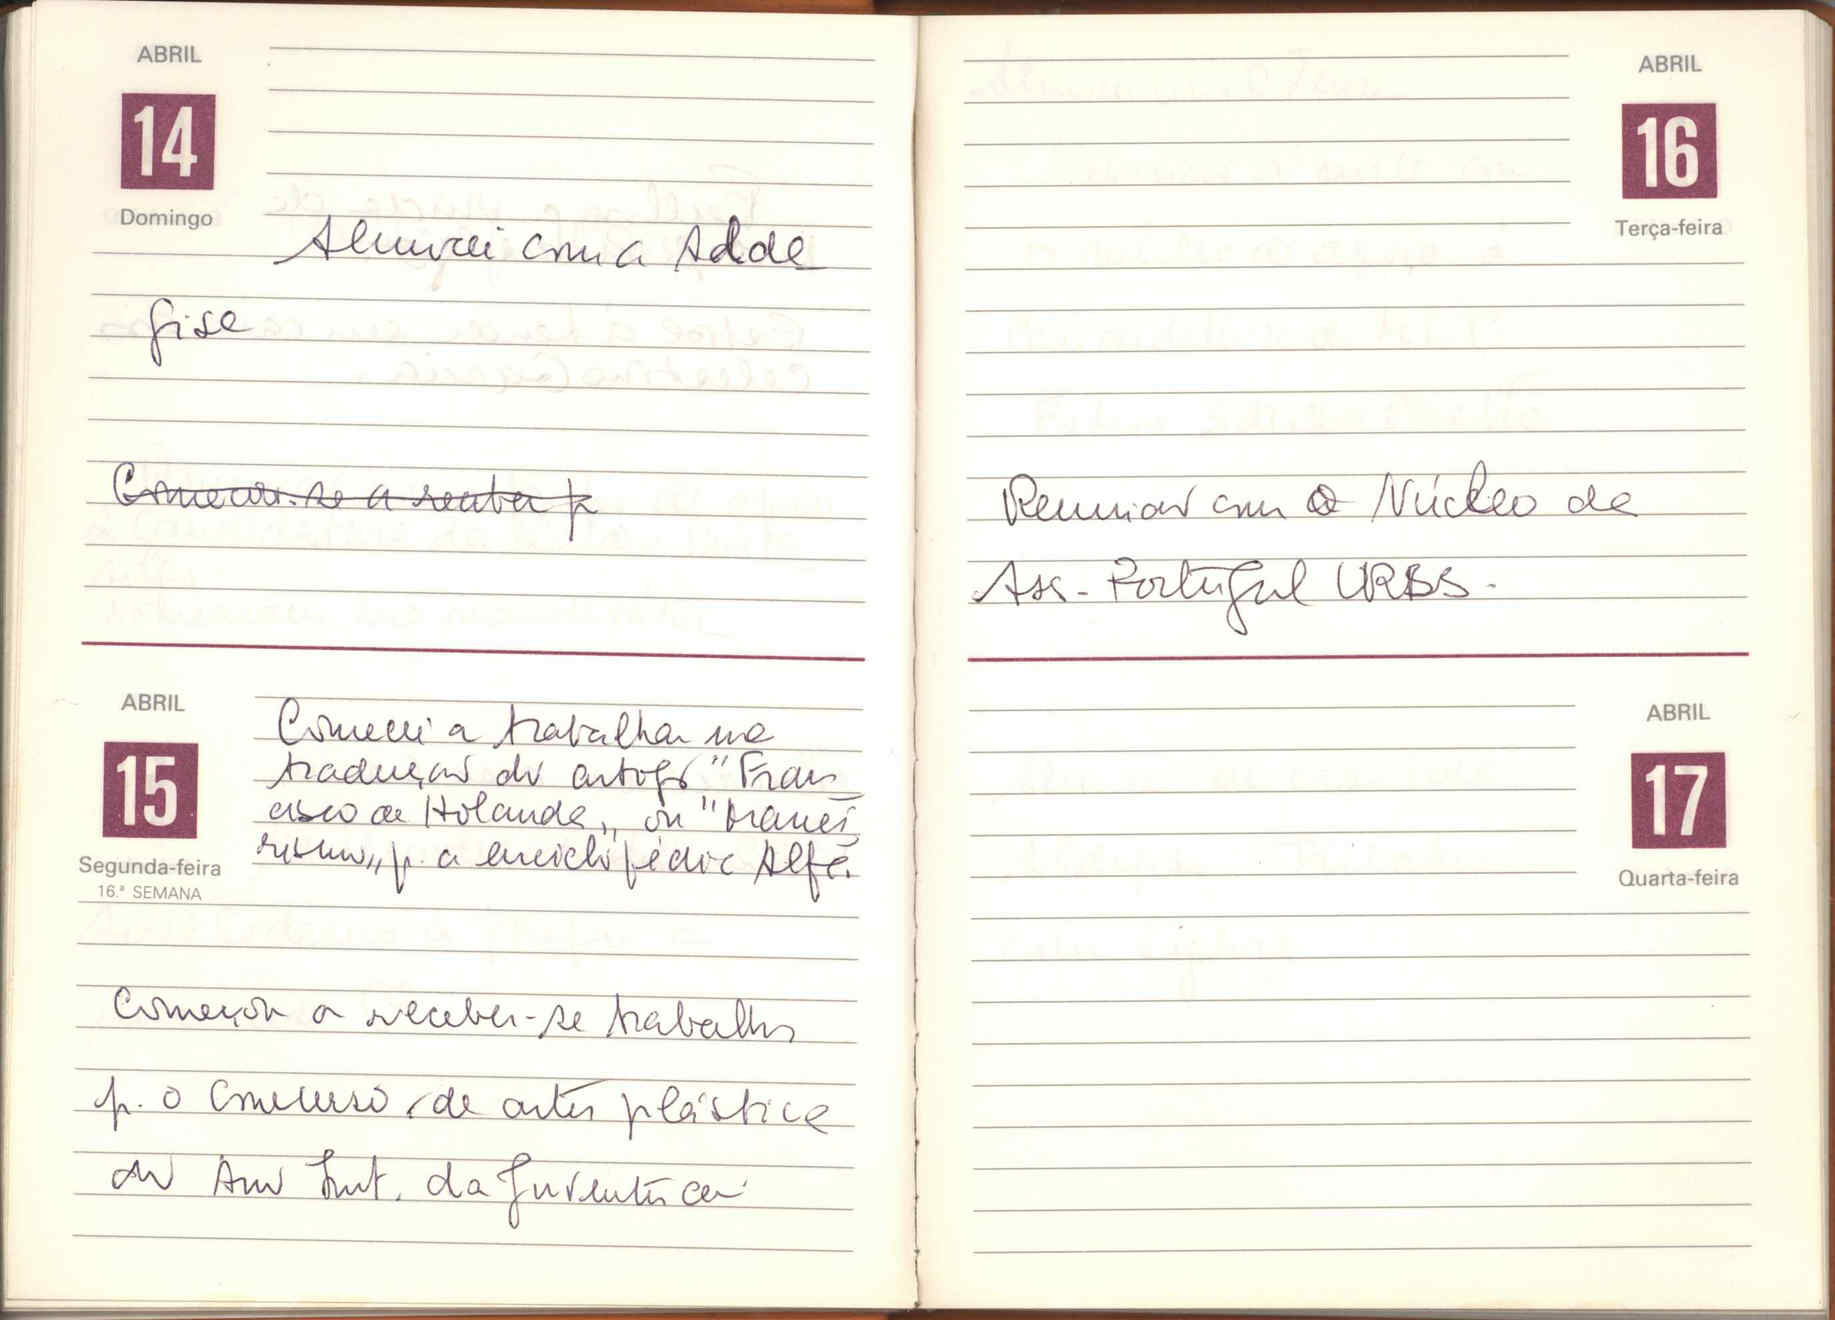 ABRIL
14
Domingo
Almocei com a Adel
gise
Começou-se a receber p
ABRIL
15
Segunda-feira
16.ª SEMANA
Comecei a trabalhar na
tradução do artogo "Fran
cisco de Holanda,, ou "Manei
rismo,, p. a enciclopédic Alfa.
Começou a receber-se trabalhos
p. o Concurso de artes plástica
do Ano Int. da Juventude
ABRIL
16
Terça-feira
Reunião com o Núcleo da
Ass. Portugal URSS.
ABRIL
17
Quarta-feira